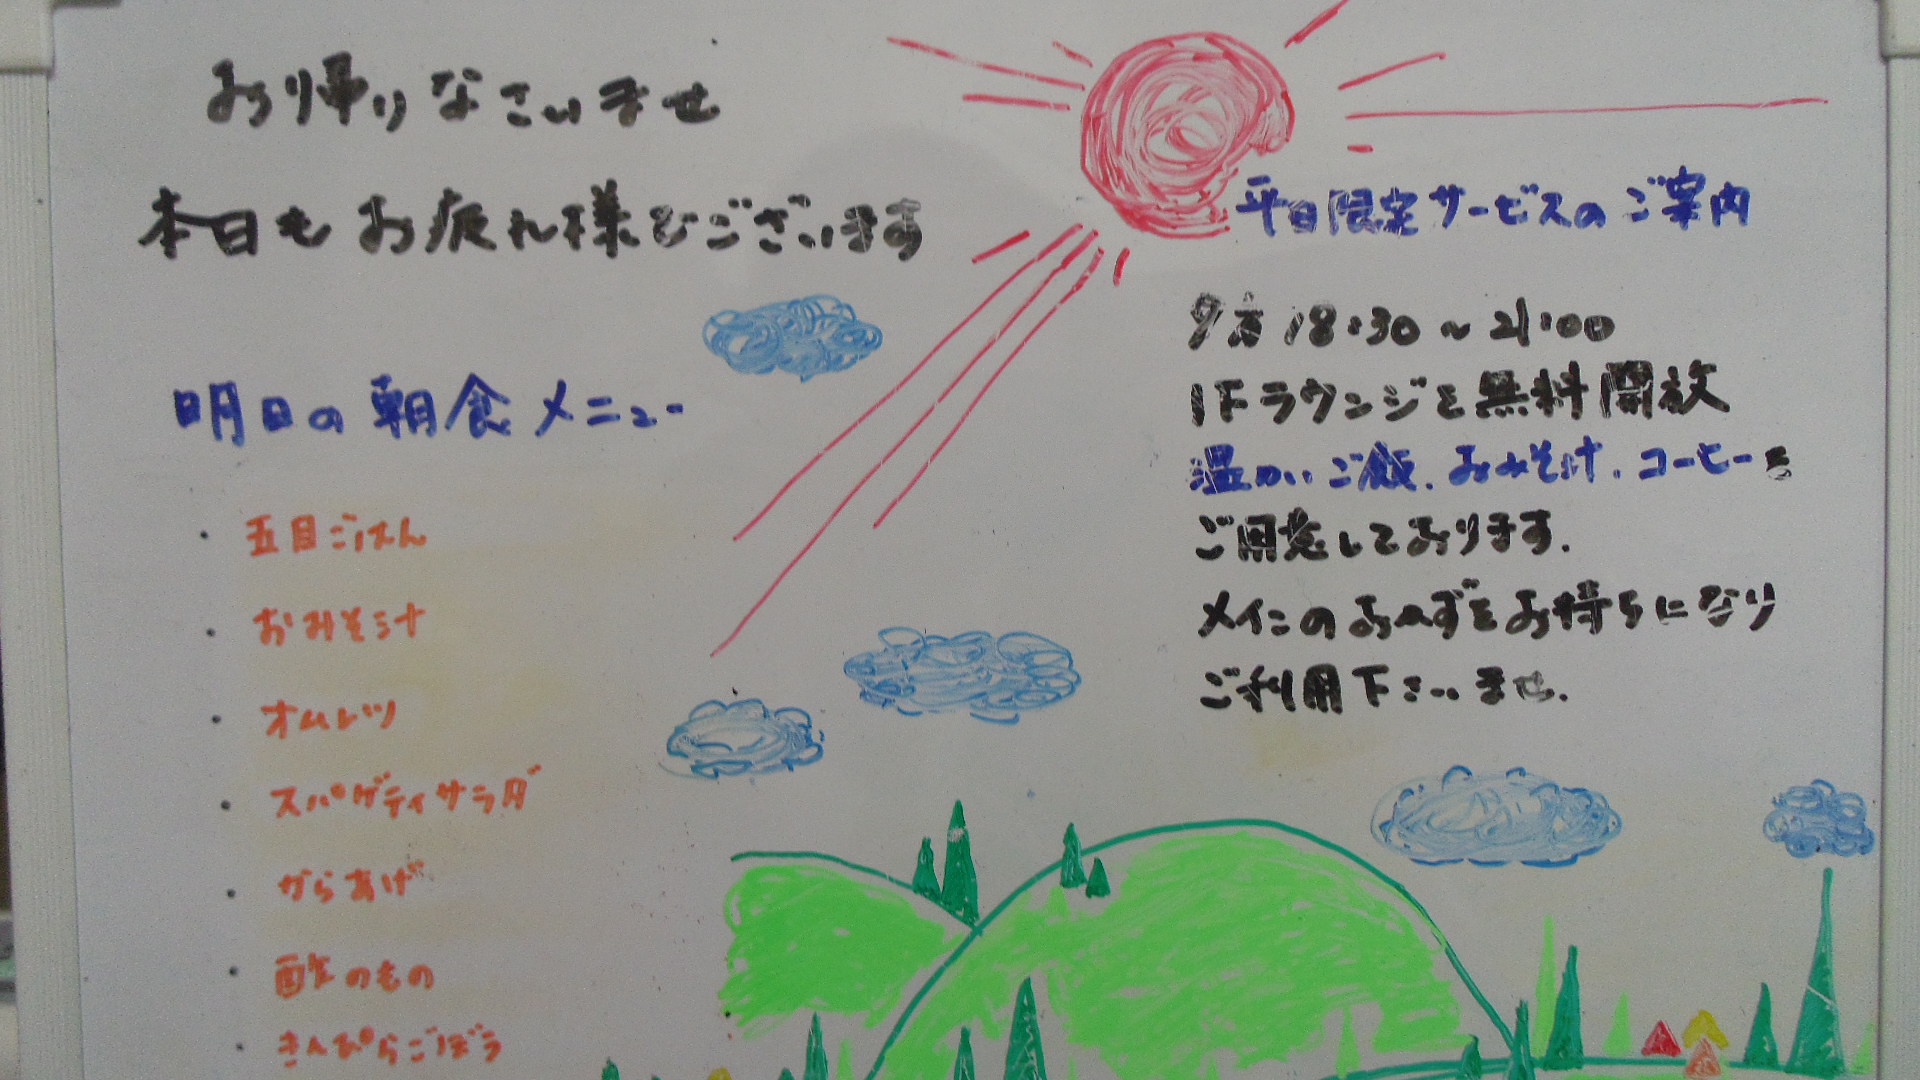 お帰りなさいませ
本日もお疲れ様でございます
明日の朝食メニュー
・五目ごはん
・おみそ汁
・オムレツ
・スパゲティサラダ
・からあげ
・酢のもの
・きんぴらごぼう
平日限定サービスのご案内
夕方 18:30～21:00
1Fラウンジを無料開放
温かいご飯、おみそ汁、コーヒーを
ご用意しております.
メインのおかずをお持ちになり
ご利用下さいませ.